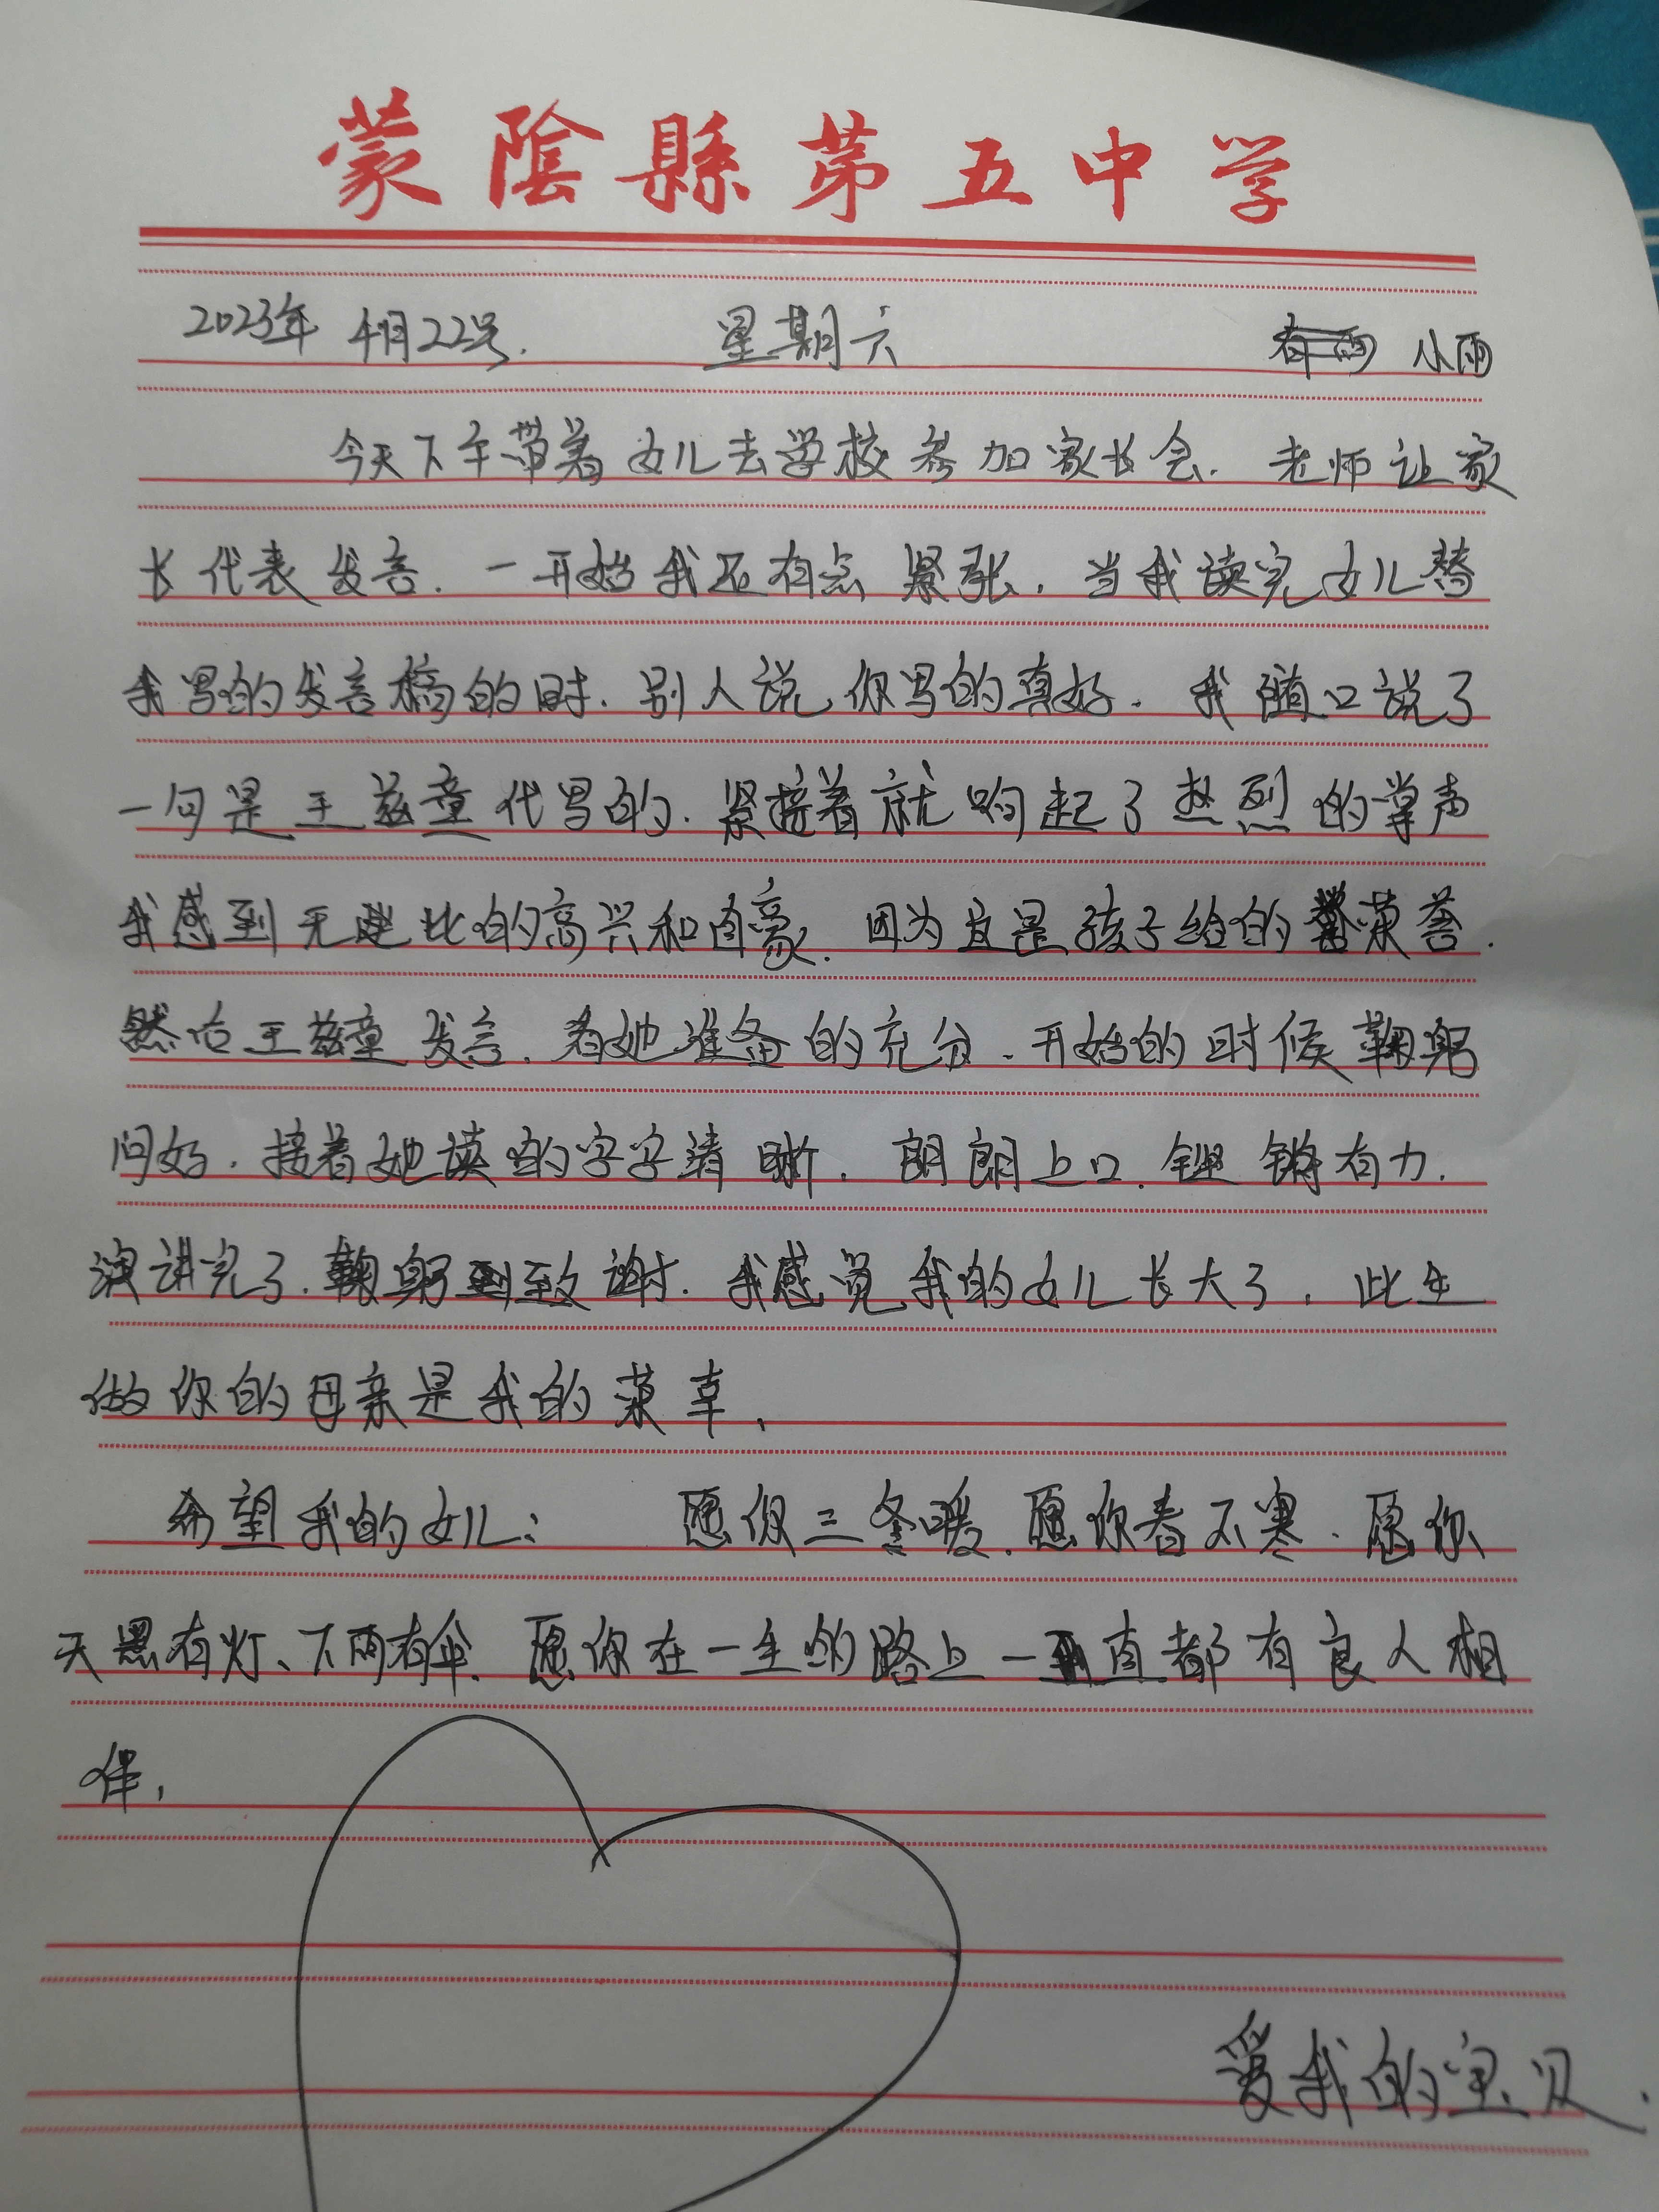 蒙陰縣第五中学
2023年 4月22号. 星期六 小雨
今天下午带着女儿去学校参加家长会. 老师让家
长代表发言. 一开始我还有点紧张. 当我读完女儿替
我写的发言稿的时. 别人说, 你写的真好. 我随口说了
一句是王兹童代写的. 紧接着就响起了热烈的掌声
我感到无比的高兴和自豪. 因为这是孩子给的荣誉.
然后王兹童发言. 看她准备的充分. 开始的时候鞠躬
问好. 接着她读的字字清晰. 朗朗上口. 铿锵有力.
演讲完了. 鞠躬致谢. 我感觉我的女儿长大了. 此生
做你的母亲是我的荣幸.
希望我的女儿: 愿你三冬暖. 愿你春不寒. 愿你
天黑有灯、下雨有伞. 愿你在一生的路上一直都有良人相
伴.
爱我的宝贝.